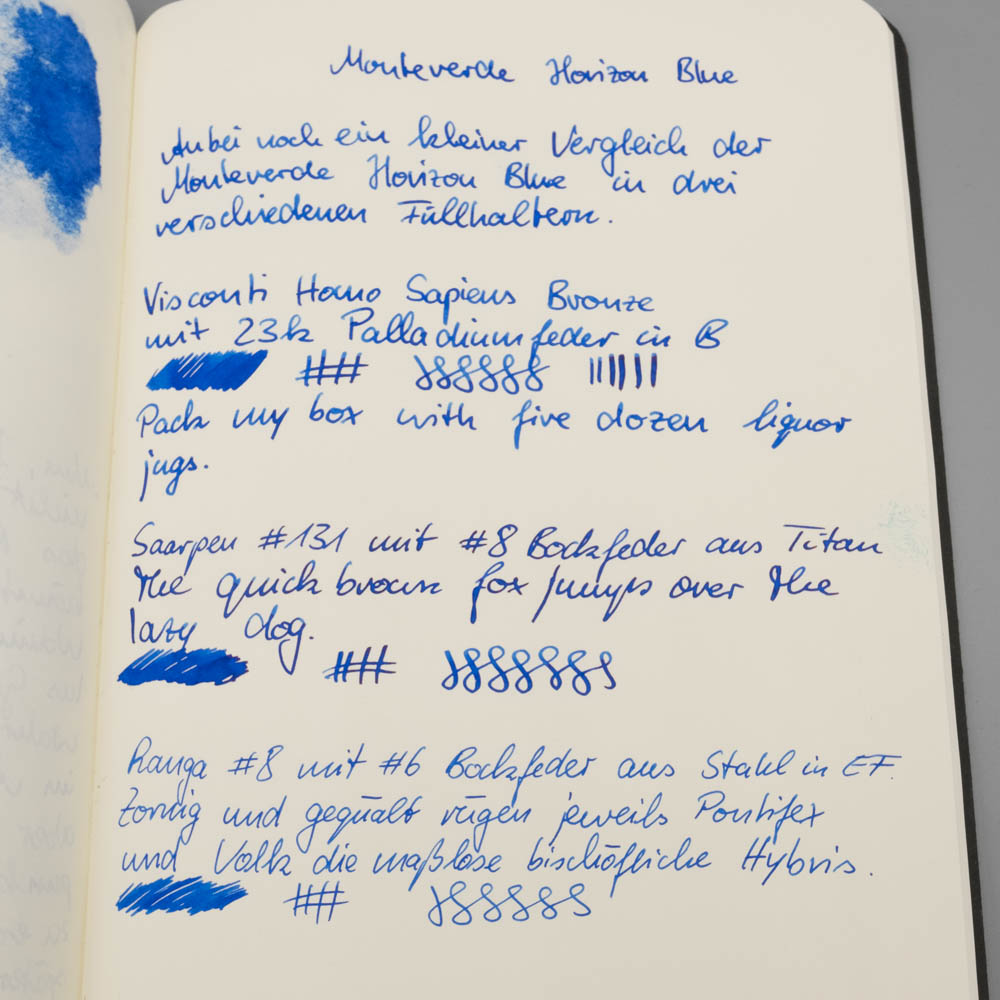 Monteverde Horizon Blue
Anbei noch ein kleiner Vergleich der
Monteverde Horizon Blue in drei
verschiedenen Füllhaltern.
Visconti Homo Sapiens Bronze
mit 23k Palladiumfeder in B
Pack my box with five dozen liquor
jugs.
Saarpen #131 mit #8 Bockfeder aus Titan
The quick brown fox jumps over the
lazy dog.
Ranga #8 mit #6 Bockfeder aus Stahl in EF.
Zornig und gequält rügen jeweils Pontifex
und Volk die maßlose bischöfliche Hybris.